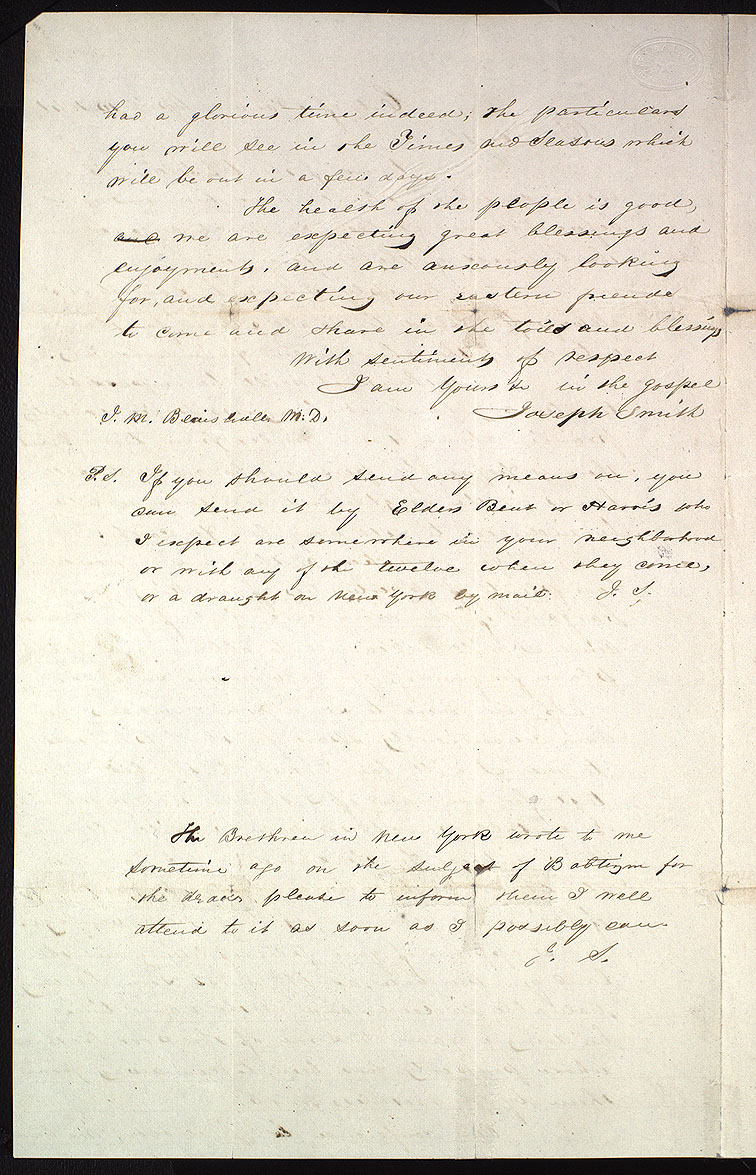 had a glorious time indeed; the particulars
you will see in the Times and Seasons which
will be out in a few days.
The health of the people is good,
and we are expecting great blessings and
enjoyments, and are anxously looking
for, and expecting our eastern friends
to come and share in the toils and blessings
With sentiments of respect
I am Yours &c in the gospel
Joseph Smith
J. M. Bernhisel M.D.
P.S. If you should send any means on, you
can send it by Elders Bent or Harris who
I expect are somewhere in your neighborhood
or with any of the twelve when they come,
or a draught on New York by mail. J. S.
The Brethren in New York wrote to me
sometime ago on the subject of Babtizm for
the dead, please to inform them I well
attend to it as soon as I possibly can.
J. S.